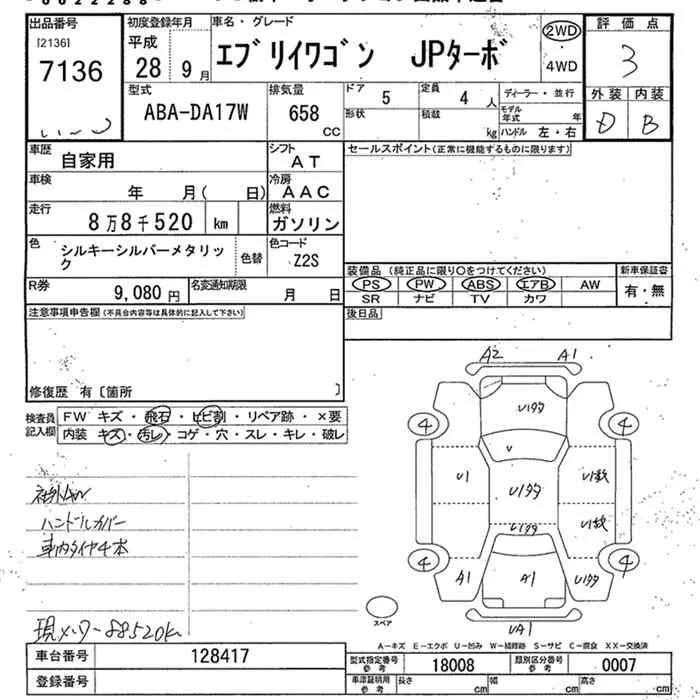 出品番号 初度登録年月 車名・グレード 評価点
[2136] 平成 エブリイワゴン JPターボ 2WD 3
7136 28 9月 ・4WD
型式 排気量 ドア 定員 ディーラー・並行 外装 内装
ABA-DA17W 658 CC 5 4人 モデル年式 年 D B
形状 積載 kg ハンドル 左・右
車歴 自家用 シフト AT セールスポイント(正常に機能するものに限ります)
車検 年 月( 日) 冷房 AAC
走行 8万8千520 km 燃料 ガソリン
色 シルキーシルバーメタリック 色替 色コード Z2S
装備品(純正品に限り○をつけてください) 新車保証書
R券 9,080円 名変通知期限 月 日 PS PW ABS エアB AW 有・無
SR ナビ TV カワ
注意事項申告欄(不具合内容等は具体的に記入して下さい) 後日品
修復歴 有〔箇所 〕
検査員記入欄 FW キズ・飛石・ヒビ割・リペア跡・×要
内装 キズ・汚レ・コゲ・穴・スレ・キレ・破レ
A2 A1
Uｲﾀﾀ
4 4
U
U1 Uｲﾀﾀ U1数
Uｲﾀﾀ U1数
4 4
A1 A1 Uｲﾀﾀ
UA1
社外AW
ハンドルカバー
車内タイヤ4本
現メーター88520K
スペア
A-キズ E-エクボ U-凹み W-補修跡 S-サビ C-腐食 XX-交換済
車台番号 128417 型式指定番号 参考 18008 類別区分番号 参考 0007
登録番号 車庫証明用 参考 長さ cm 幅 cm 高さ cm